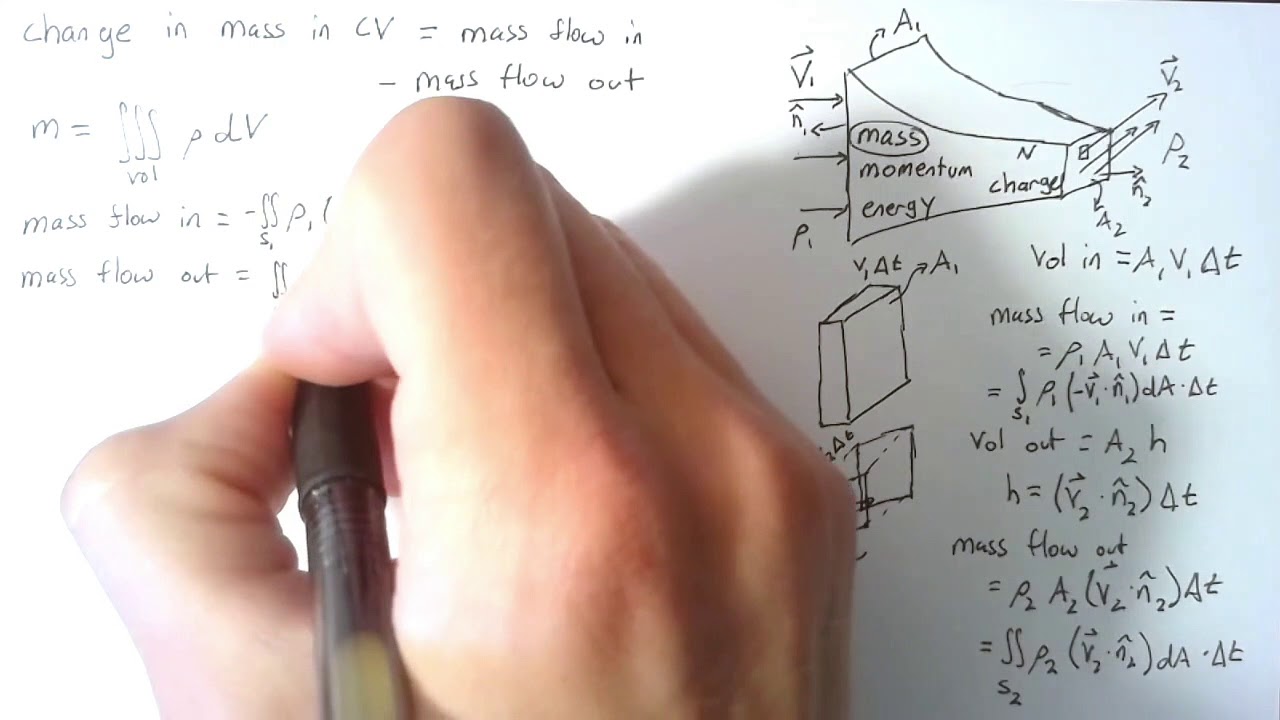 change in mass in CV = mass flow in
- mass flow out
m = ∭ ρ dV
vol
mass flow in = -∬ ρ₁ (
S₁
mass flow out = ∬
A₁
V⃗₁
n̂₁
mass
momentum
energy
ρ₁
N
change
V⃗₂
ρ₂
n̂₂
A₂
Vol in = A₁ V₁ Δt
V₁Δt
A₁
mass flow in =
= ρ₁ A₁ V₁ Δt
= ∫ ρ₁ (-v⃗₁·n̂₁) dA·Δt
S₁
Vol out = A₂ h
₂Δt
h = (v⃗₂·n̂₂) Δt
mass flow out
= ρ₂ A₂ (v⃗₂·n̂₂) Δt
= ∬ ρ₂ (v⃗₂·n̂₂) dA·Δt
S₂